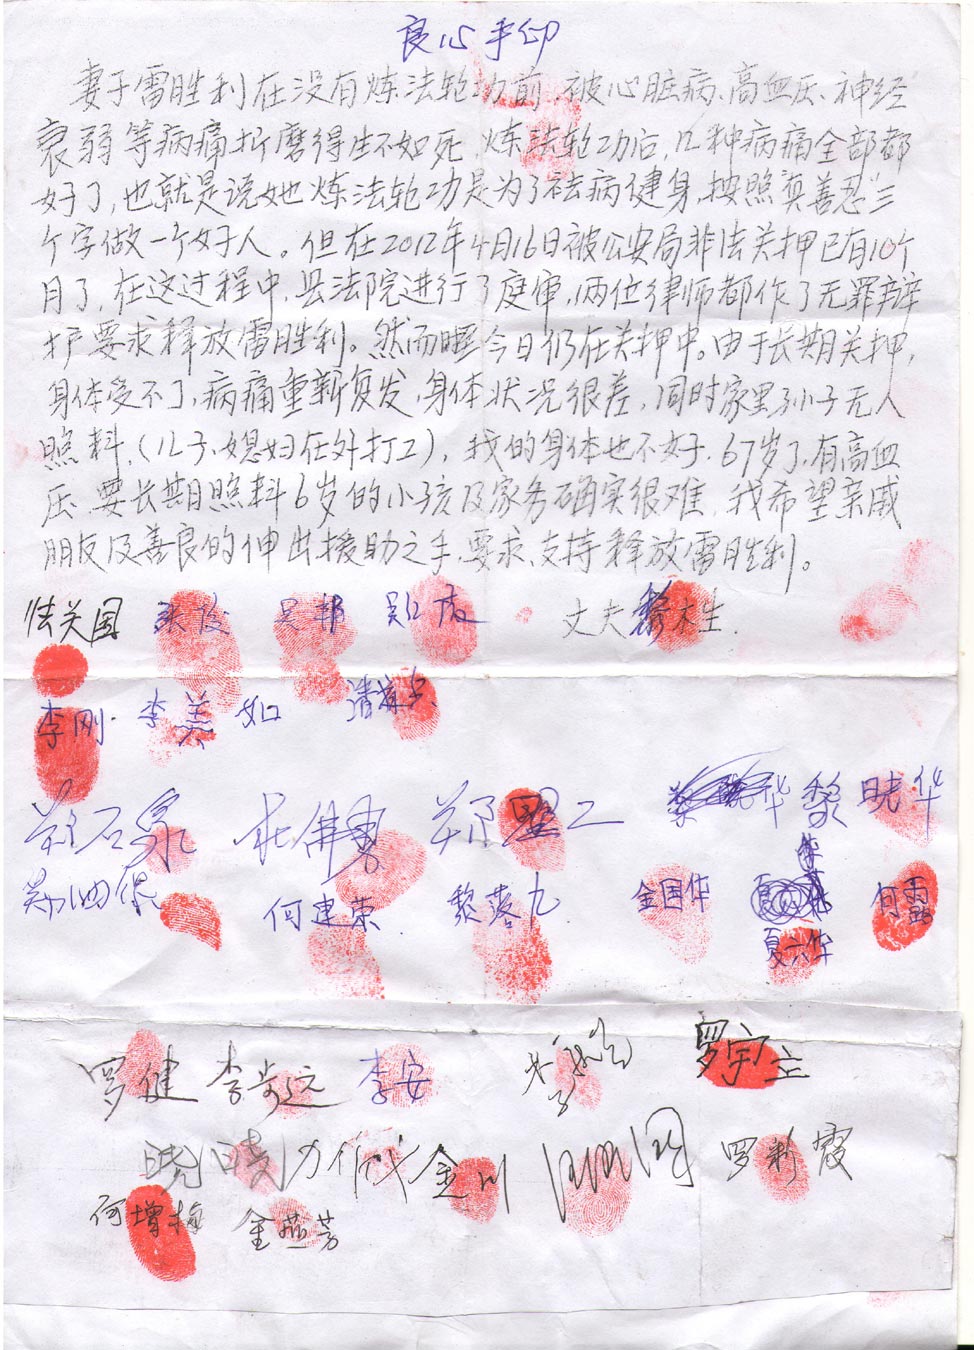 良心手印
妻子雷胜利在没有炼法轮功前、被心脏病、高血压、神经
衰弱等病痛折磨得生不如死，炼法轮功后，几种病痛全部都
好了，也就是说她炼法轮功是为了祛病健身，按照真善忍三
个字做一个好人。但在2012年4月16日被公安局非法关押已有10个
月了，在这过程中，县法院进行了庭审，两位律师都作了无罪辩
护要求释放雷胜利。然而今日仍在关押中。由于长期关押，
身体受不了，病痛重新复发，身体状况很差，同时家里孙子无人
照料，（儿子、媳妇在外打工），我的身体也不好，67岁了，有高血
压，要长期照料6岁的小孩及家务确实很难，我希望亲戚
朋友及善良的伸出援助之手，要求支持释放雷胜利。
丈夫 木生.
李刚 李美如
华 黎晓华
何建荣 黎落九 金国华 何
夏六华
罗健 李 李安 罗宇立
金川 罗新霞
何增梅 金燕芳